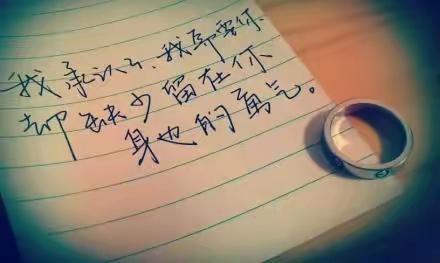 我承认了、我即要你
却缺少留在你
身边的勇气。